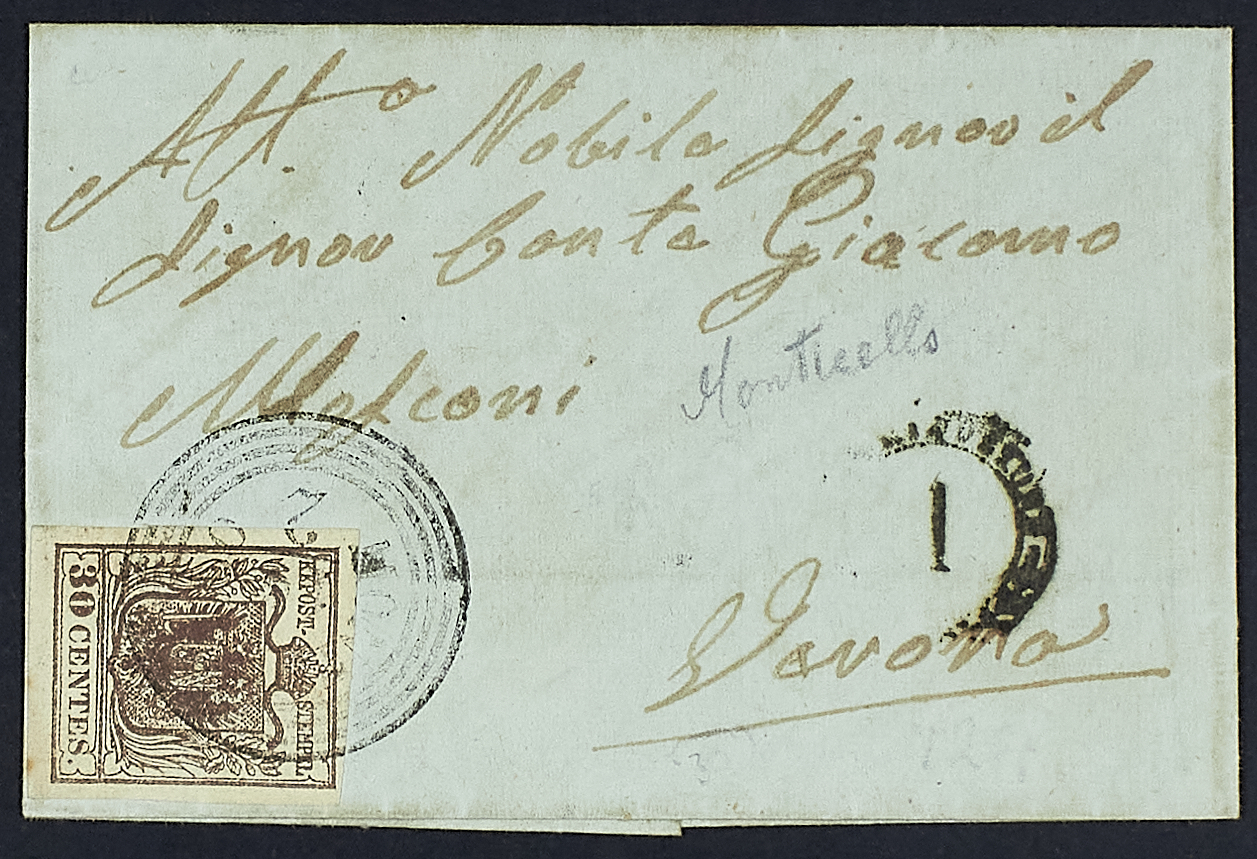 All.o Nobile Signor il
Signor Conte Giacomo
Monticello
1
Verona
KKPOST-STEMPEL
30 CENTES.